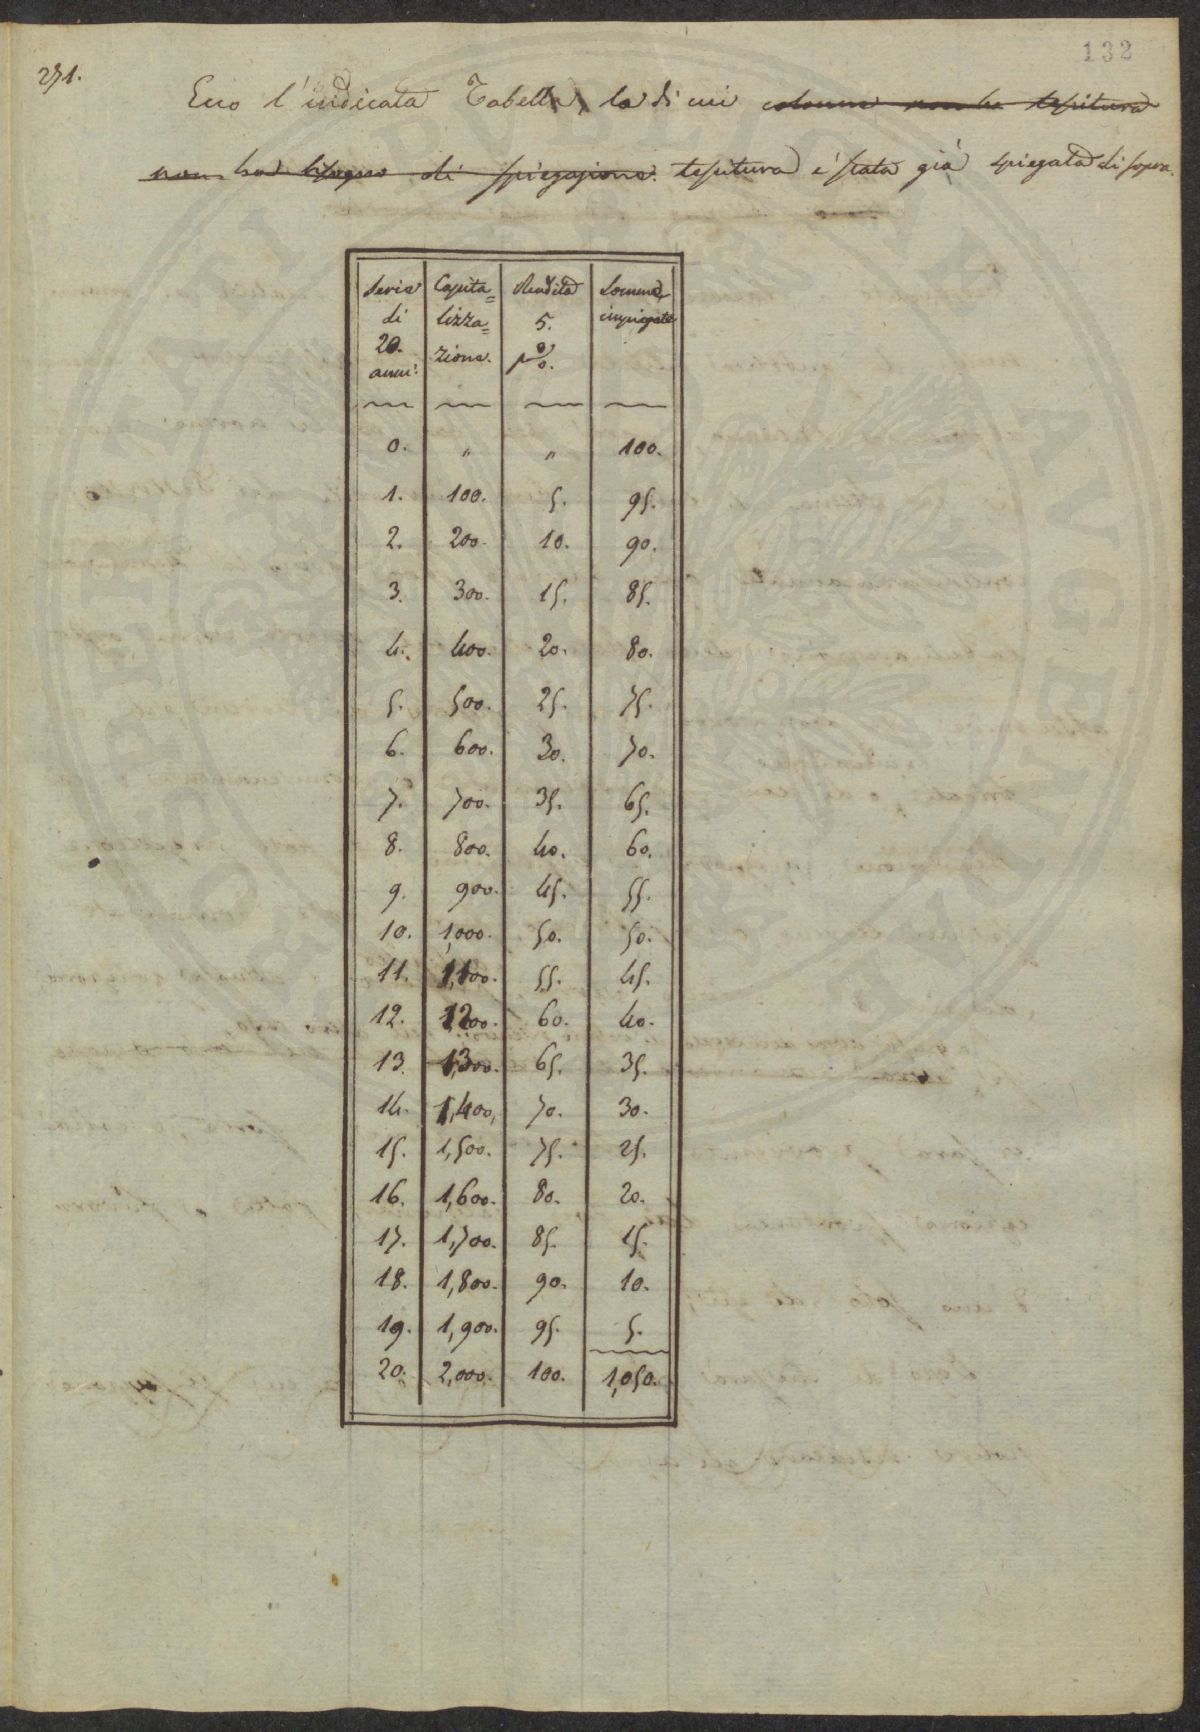 132
271.
Ecco l'indicata Tabella, la di cui colonna non ha tessitura
non ha bisogno di spiegazione. tessitura è stata già spiegata di sopra.
Serie di 20. anni. Capita= lizza= zione. Rendita 5. p% Somme impiegate
0. " " 100.
1. 100. 5. 95.
2. 200. 10. 90.
3. 300. 15. 85.
4. 400. 20. 80.
5. 500. 25. 75.
6. 600. 30. 70.
7. 700. 35. 65.
8. 800. 40. 60.
9. 900. 45. 55.
10. 1,000. 50. 50.
11. 1,100. 55. 45.
12. 1,200. 60. 40.
13. 1,300. 65. 35.
14. 1,400, 70. 30.
15. 1,500. 75. 25.
16. 1,600. 80. 20.
17. 1,700. 85. 15.
18. 1,800. 90. 10.
19. 1,900. 95. 5.
20. 2,000. 100. 1,050.